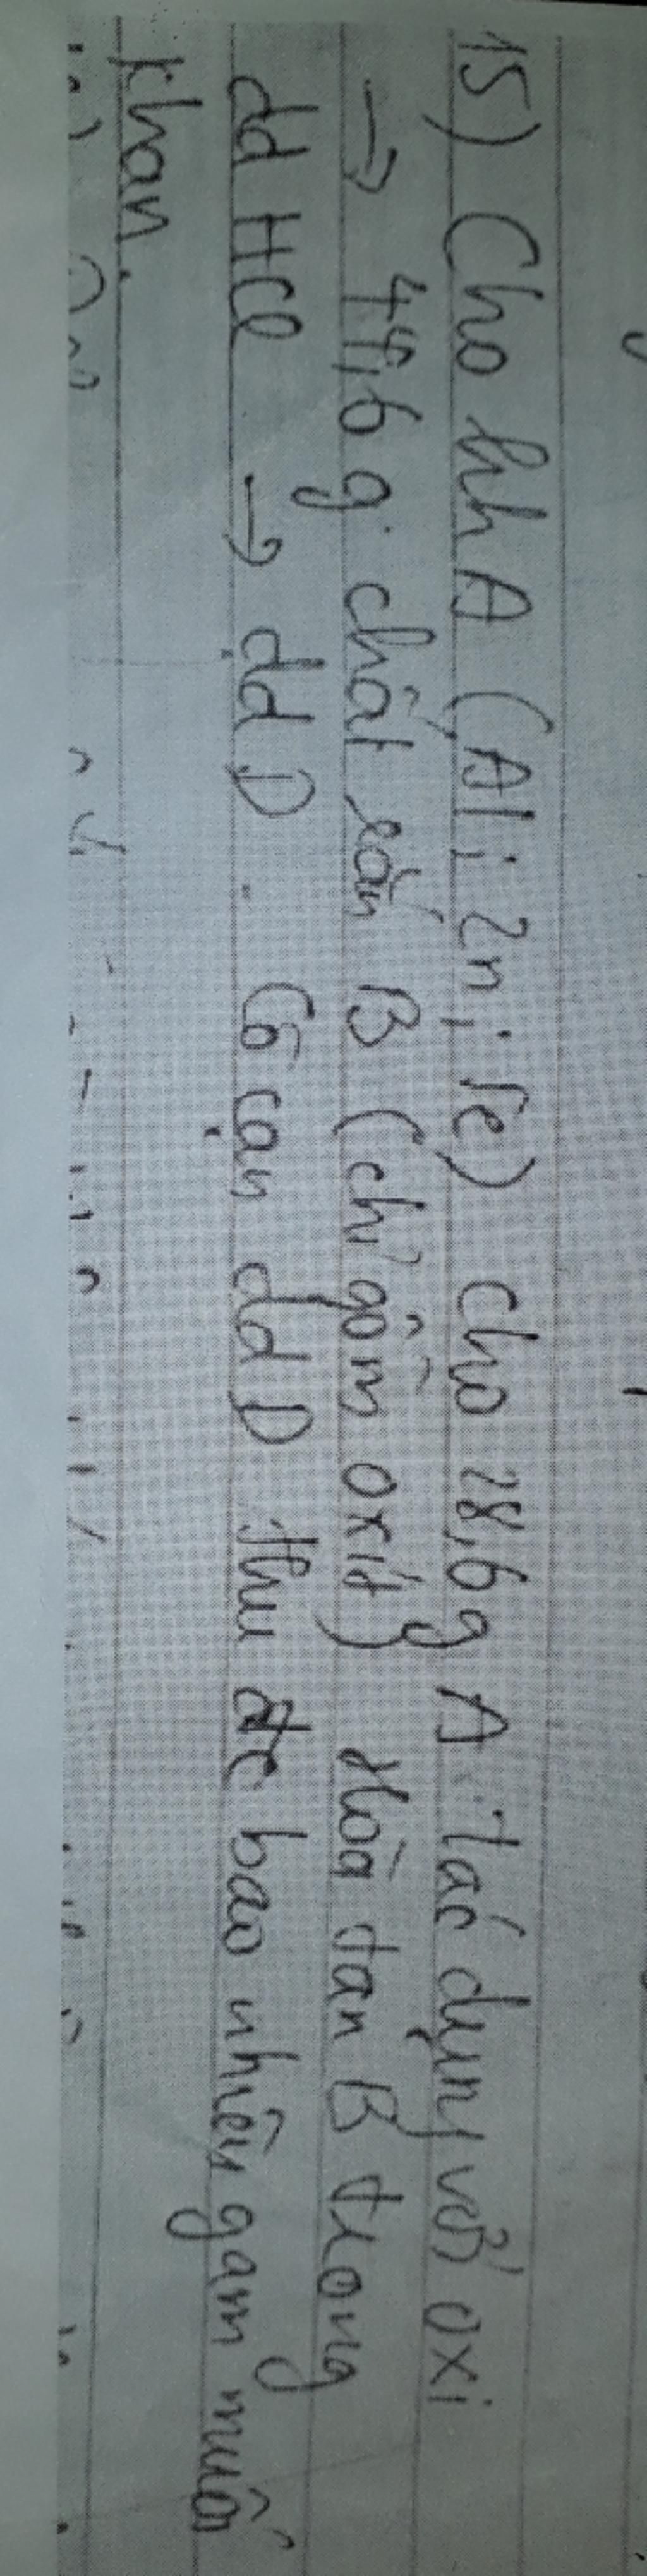 15) Cho hh A (Al; Zn; Fe) cho 28,6g A tác dụng với oxi
→ 44,6 g chất rắn B (chỉ gồm oxit) Hòa tan B trong
dd HCl → dd D. Cô cạn dd D thu đc bao nhiêu gam muối
khan.